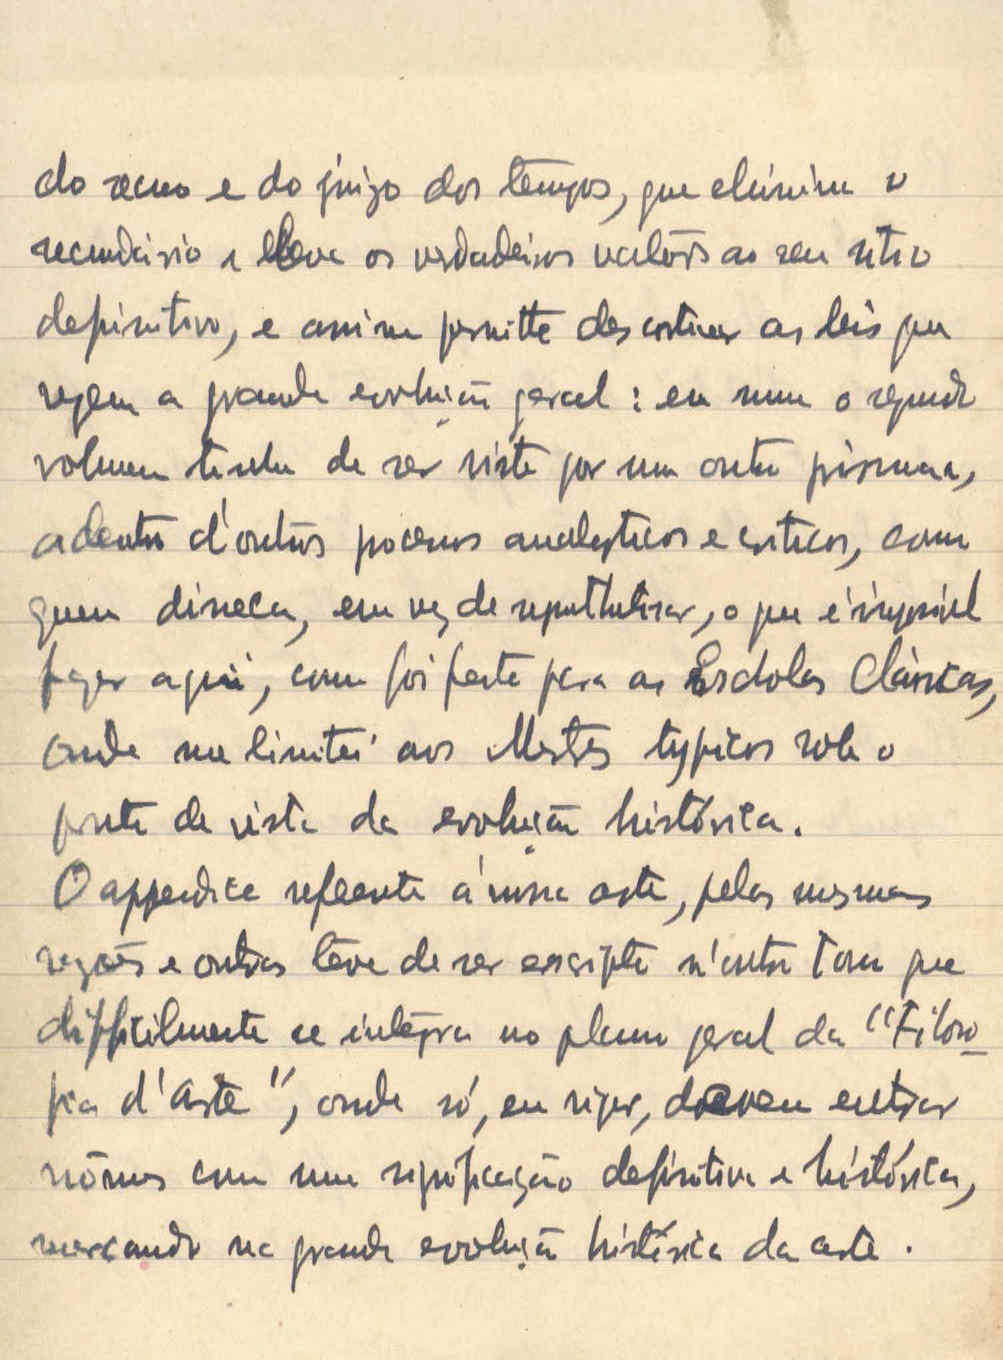 do recuo e do juizo dos tempos, que elimina o
secundario e eleva os verdadeiros valôrs ao seu sitio
definitivo, e assim permitte descortinar as leis que
regem a grande evolução geral: em summa o segundo
volumen tinha de ser visto por um outro prisma,
adentro d'outros processos analyticos e criticos, como
quem disseca, em vez de synthetisar, o que é impossivel
fazer aqui, como foi feito para as Escolas Clássicas,
onde me limitei aos Mestres typicos sob o
ponto de vista da evolução histórica.
O appendice referente á nossa arte, pelas mesmas
razões e outras têve de ser escripto n'outro tom que
difficilmente se intégra no plano geral da "Filoso-
fia d'Arte", onde só, em rigor, devem entrar
nômes com uma significação definitiva e histórica,
marcando na grande evolução histórica da arte.